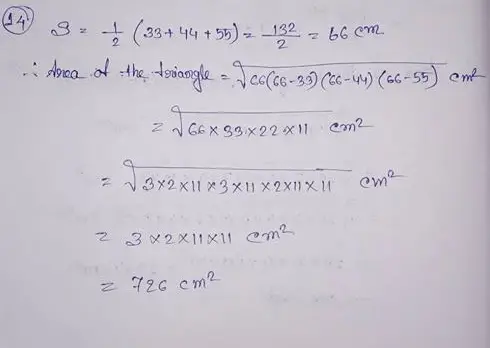 14 S = 1/2 (33+44+55) = 132/2 = 66 cm
∴ Area of the triangle = √66(66-33)(66-44)(66-55) cm²
= √66×33×22×11 cm²
= √3×2×11×3×11×2×11×11 cm²
= 3×2×11×11 cm²
= 726 cm²